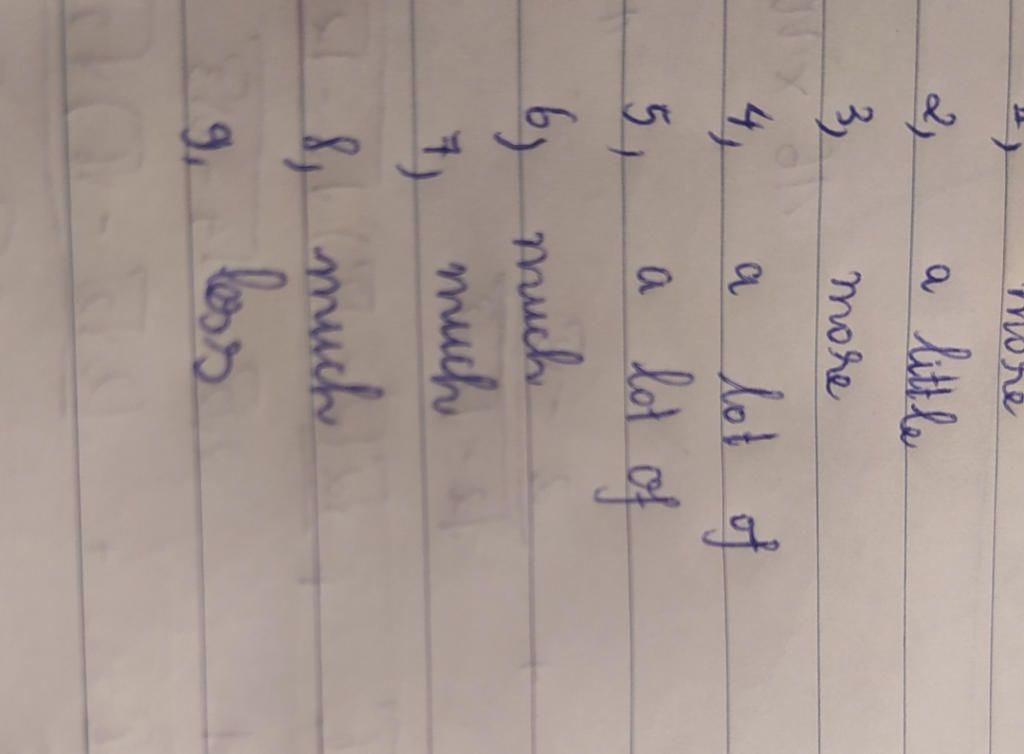 1, more
2, a little
3, more
4, a lot of
5, a lot of
6, much
7, much
8, much
9, less